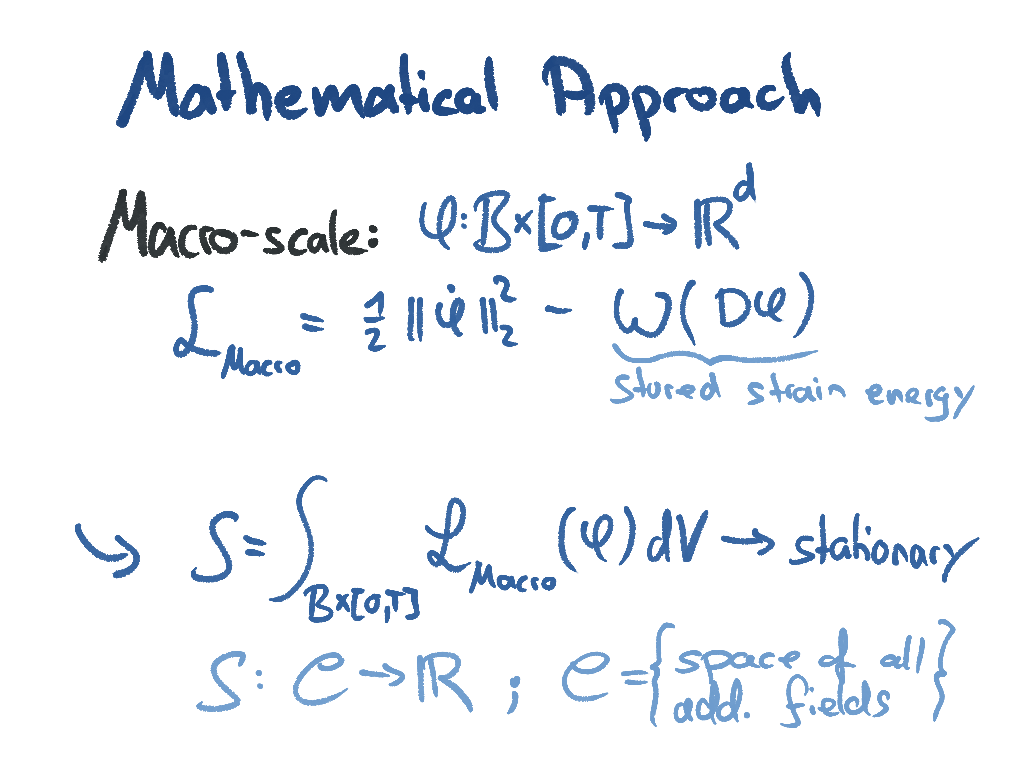 Mathematical Approach
Macro-scale: φ: B×[0,T] → ℝ^d
ℒ_Macro = 1/2 ‖φ̇‖₂² − W(Dφ)
stored strain energy
↪ S = ∫_{B×[0,T]} ℒ_Macro (φ) dV → stationary
S: 𝒞 → ℝ ; 𝒞 = {space of all
add. fields}